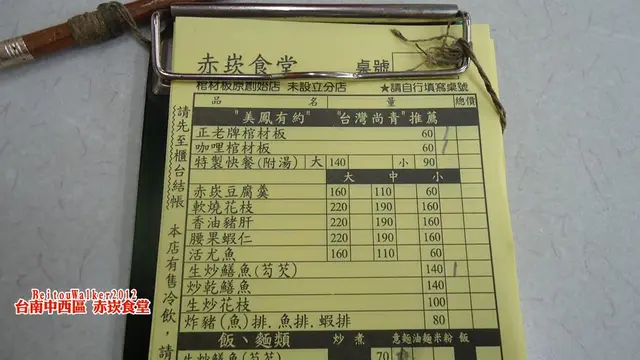 赤崁食堂 桌號
棺材板原創始店 未設立分店 ★請自行填寫桌號
品 名 量 總價
"美鳳有約" "台灣尚青"推薦
正老牌棺材板 60
咖哩棺材板 60
特製快餐(附湯) 大 140 小 90
大 中 小
赤崁豆腐羹 160 110 60
軟燒花枝 220 190 160
香油豬肝 220 190 160
腰果蝦仁 220 190 160
活尤魚 160 110 60
生炒鱔魚(芶芡) 140
炒乾鱔魚 140
生炒花枝 100
炸豬(魚)排、魚排、蝦排 80
飯、麵類 炒 煮 意麵 油麵 米粉 飯
生炒鱔魚(芶芡) 70
請先至櫃台結帳
本店有售冷飲，請
BeitouWalker2012
台南中西區 赤崁食堂